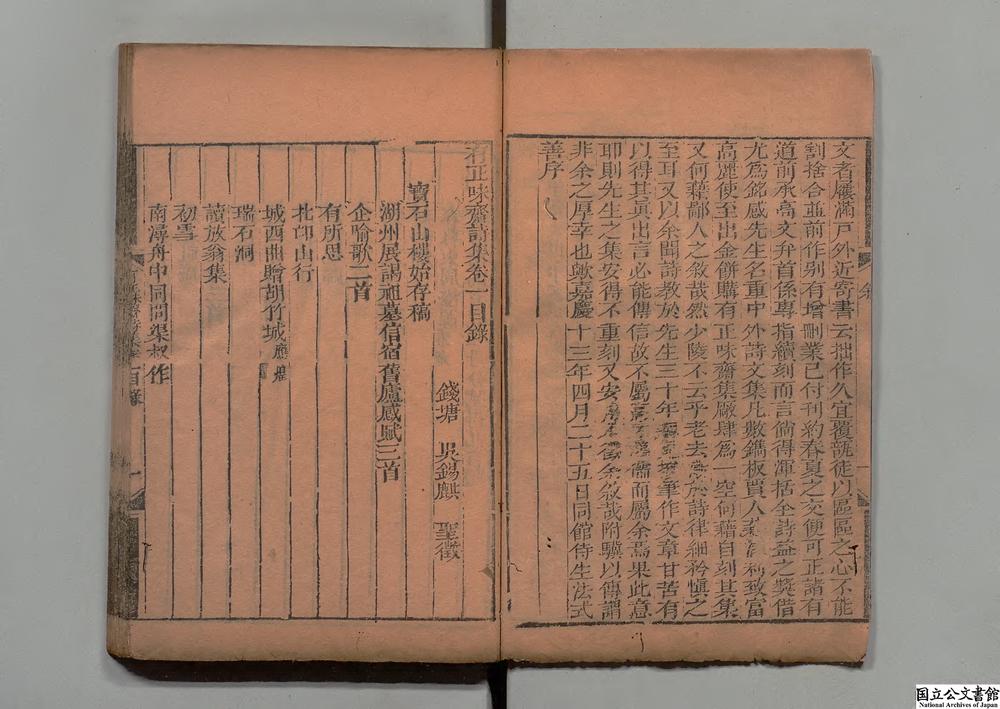 文者屨滿戸外近寄書云拙作久宜覆瓿徒以區區之心不能
割捨合並前作别有增刪業已付刊約春夏之交便可正諸有
道前承高文弁首係專指續刻而言倘得渾括全詩益之獎借
尤爲銘感先生名重中外詩文集凡數鐫板賈人藉漁利致富
高麗使至出金餅購有正味齋集厰肆爲一空何藉自刻其集
又何藉鄙人之敘哉然少陵不云乎老去漸於詩律細矜愼之
至耳又以余聞詩教於先生三十年筆作文章甘苦有
以得其眞出言必能傳信故不屬鴻儒而屬余焉果此意
耶則先生之集安得不重刻又安用余敘哉附驥以傳謂
非余之厚幸也歟嘉慶十三年四月二十五日同館侍生法式
善序
有正味齋詩集卷一目錄
錢塘 吳錫麒 聖徵
寶石山樓始存稿
湖州展謁祖墓信宿舊廬感賦三首
企喻歌二首
有所思
北邙山行
城西曲贈胡竹城
瑞石洞
讀放翁集
初雪
南潯舟中同問渠叔作